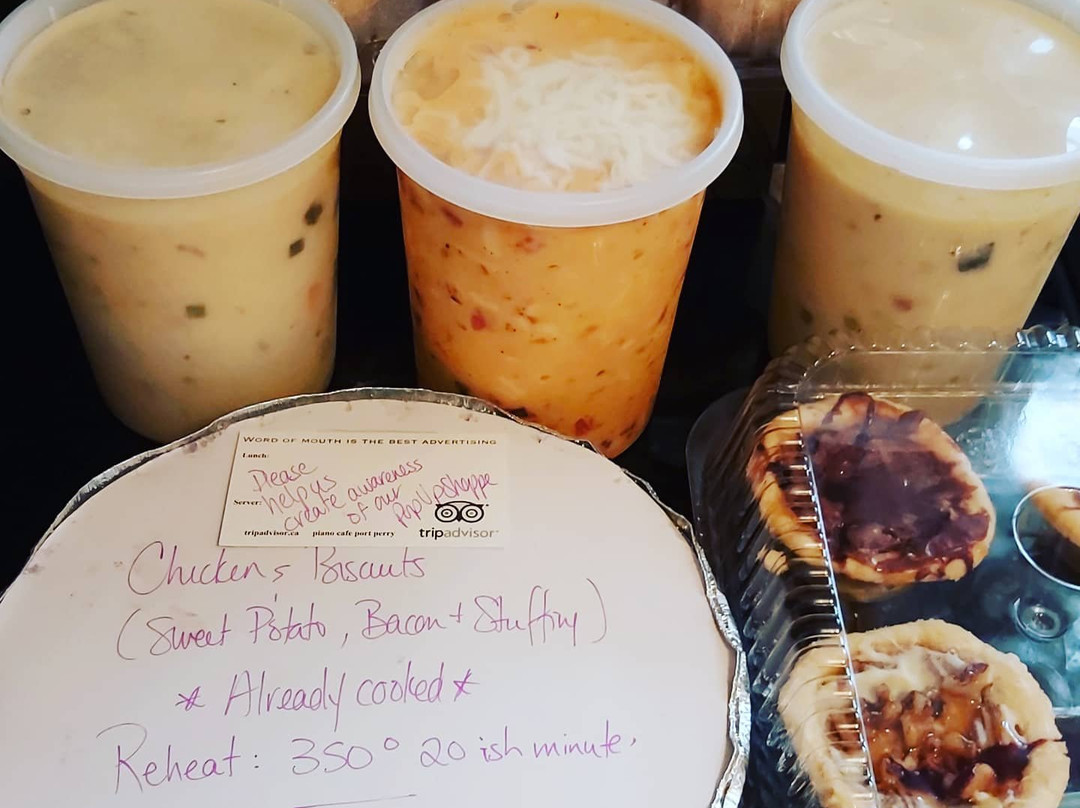 WORD OF MOUTH IS THE BEST ADVERTISING
Lunch:
Please
help us
create awareness
of our
PopUpshoppe
Server:
tripadvisor.ca piano cafe port perry
tripadvisor
Chicken & Biscuits
(Sweet Potato, Bacon + Stuffing)
* Already cooked *
Reheat: 350° 20 ish minute.